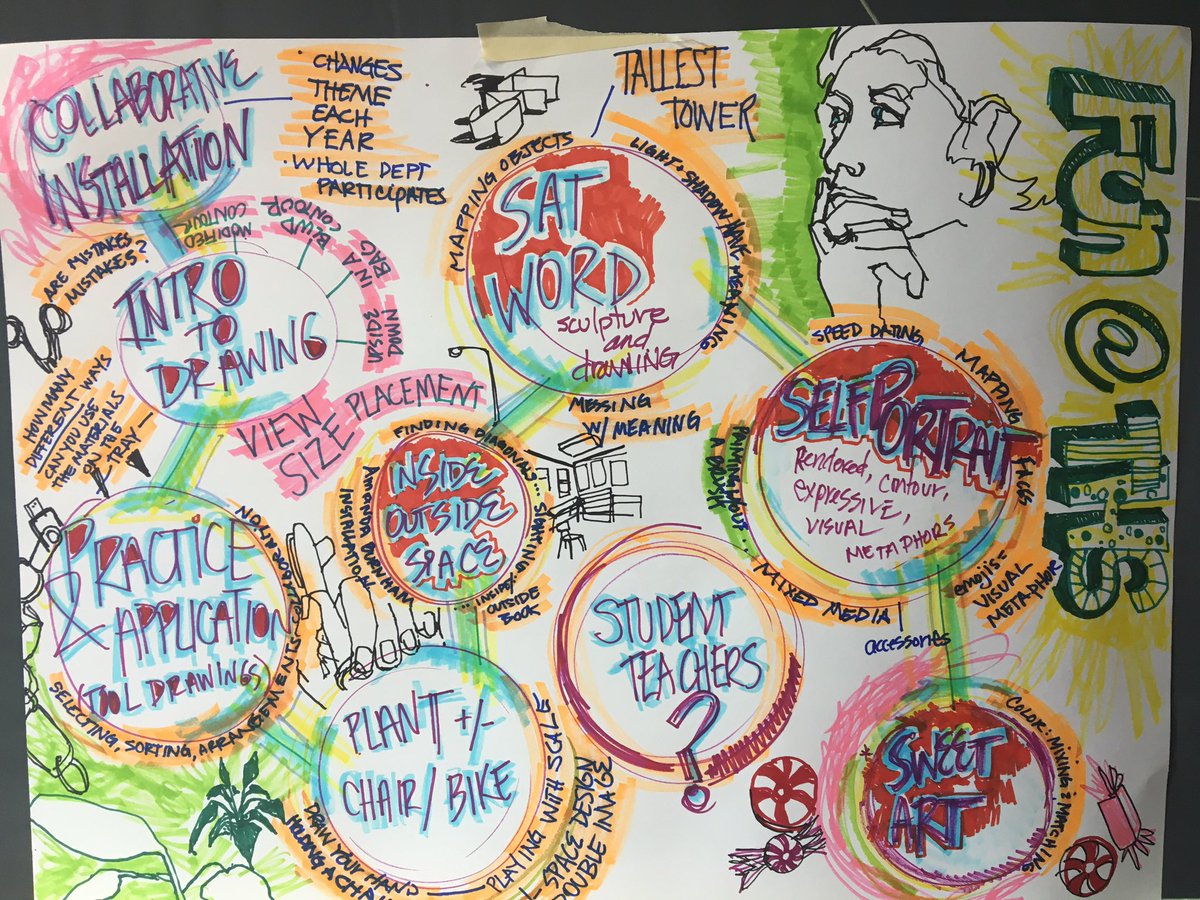 COLLABORATIVE
INSTALLATION
· CHANGES
THEME
EACH
YEAR
· WHOLE DEPT
PARTICIPATES
TALLEST
TOWER
FUN @ LHS
ARE MISTAKES
MISTAKES?
INTRO
TO
DRAWING
MODIFIED
CONTOUR
BLIND
CONTOUR
IN A
BAG
UPSIDE
DOWN
VIEW
SIZE PLACEMENT
HOW MANY
DIFFERENT WAYS
CAN YOU USE
THE MATERIALS
ON THE
TRAY
MAPPING OBJECTS
LIGHT & SHADOW HAVE MEANING
SAT
WORD
sculpture
and
drawing
MESSING
W/ MEANING
SPEED DATING
MAPPING
FACES
SELF PORTRAIT
Rendered, contour,
expressive,
VISUAL
METAPHORS
PAINTING W/OUT
A BRUSH
MIXED MEDIA
accessories
emojis =
VISUAL
METAPHOR
FINDING DIAGONALS...
INSIDE
OUTSIDE
SPACE
INSTALLATION
... INSIDE/
OUTSIDE
BOOK
PRACTICE
& APPLICATION
(TOOL DRAWINGS)
SELECTING, SORTING, ARRANGEMENTS
STUDENT
TEACHERS
?
PLANT +/-
CHAIR/ BIKE
DRAW YOUR HAND
PLAYING WITH SCALE
SPACE DESIGN
DOUBLE IMAGE
* SWEET
ART
COLOR: MIXING & MATCHING